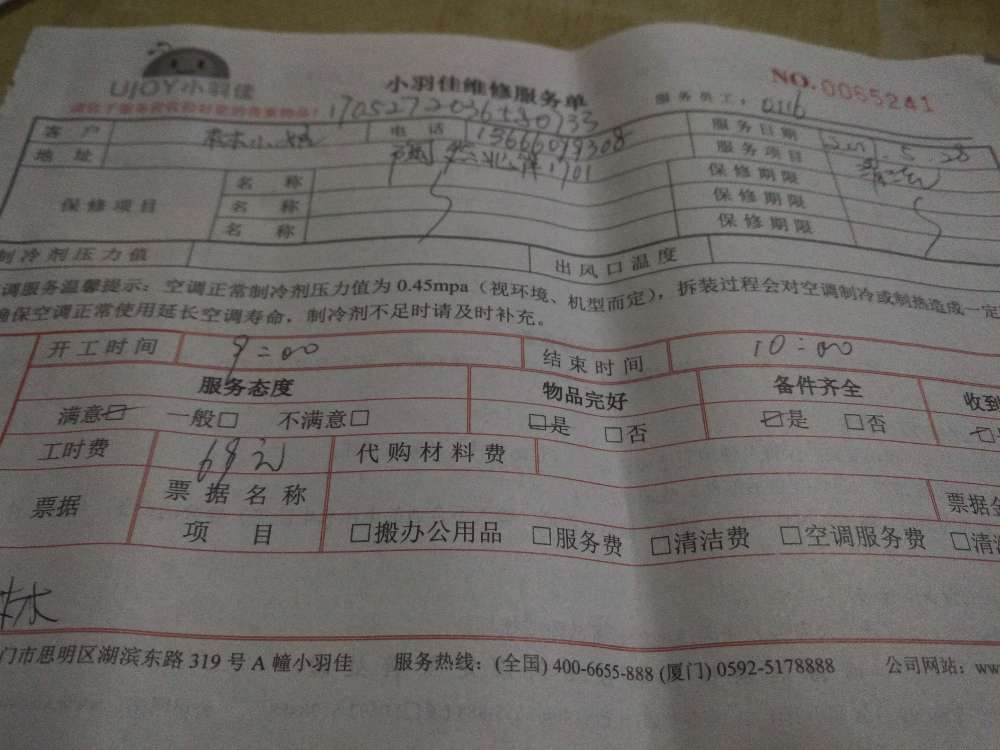 UJOY小羽佳
小羽佳维修服务单
NO.0065241
服务员工：0116
客户 林小姐 电话 13666099308 服务日期 5.28
地址 1701 服务项目
保修项目 名称 保修期限
名称 保修期限
名称 保修期限
制冷剂压力值 出风口温度
调服务温馨提示：空调正常制冷剂压力值为0.45mpa（视环境、机型而定），拆装过程会对空调制冷或制热造成一定
确保空调正常使用延长空调寿命，制冷剂不足时请及时补充。
开工时间 9:00 结束时间 10:00
服务态度 物品完好 备件齐全 收到
满意☑ 一般□ 不满意□ ☑是 □否 ☑是 □否
工时费 68元 代购材料费
票据 票据名称 票据金
项目 □搬办公用品 □服务费 □清洁费 □空调服务费 □清洁
林
门市思明区湖滨东路319号A幢小羽佳 服务热线：(全国) 400-6655-888 (厦门) 0592-5178888 公司网站：www